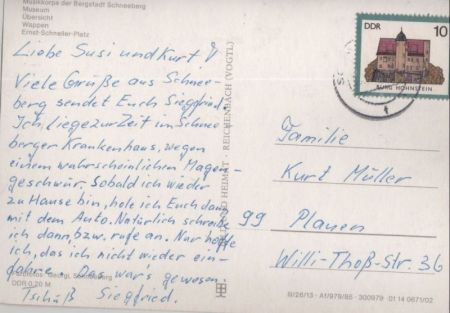 Musikkorps der Bergstadt Schneeberg
Museum
Übersicht
Wappen
Ernst-Schneller-Platz
Liebe Susi und Kurt!
Viele Grüße aus Schnee-
berg sendet Euch Siegfried.
Ich liege zur Zeit im Schnee
berger Krankenhaus, wegen
einem wahrscheinlichen Magen-
geschwür. Sobald ich wieder
zu Hause bin, hole ich Euch dann
mit dem Auto. Natürlich schreibe
ich dann, bzw. rufe an. Nur hoffe
ich, das ich nicht wieder ein-
fahre. Das wär's gewesen.
Tschüß Siegfried.
DDR 0,20 M
HEIMAT REICHENBACH (VOGTL)
DDR 10
BURG HOHNSTEIN
Familie
Kurt Müller
99 Plauen
Willi-Thoß-Str. 36
III/26/13 · A1/979/85 · 300979 01 14 0671/02